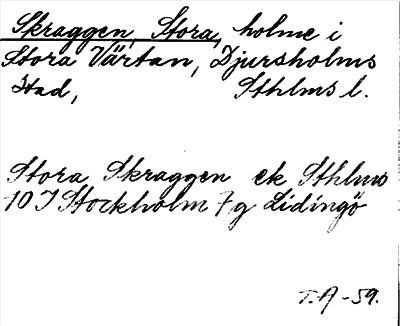 Skraggen, Stora, holme i
Stora Värtan, Djursholms
stad, Sthlms l.
Stora Skraggen ek Sthlms
10 I Stockholm 7 g Lidingö
T.A -59.